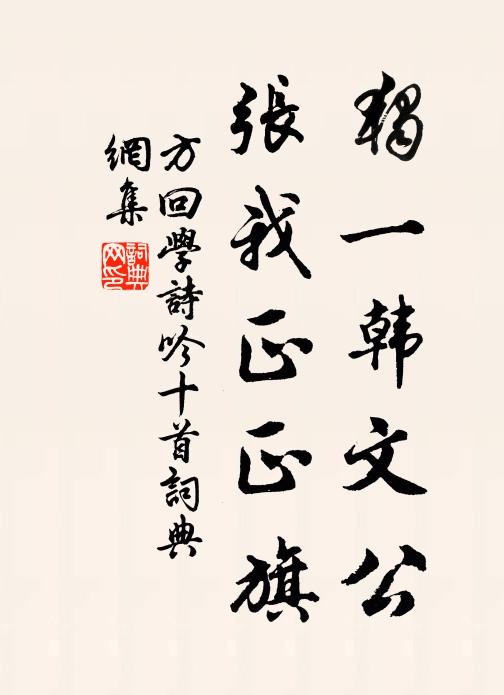 獨一韩文公
張我正正旗
方回學詩吟十首詞典
網集
詞典網印